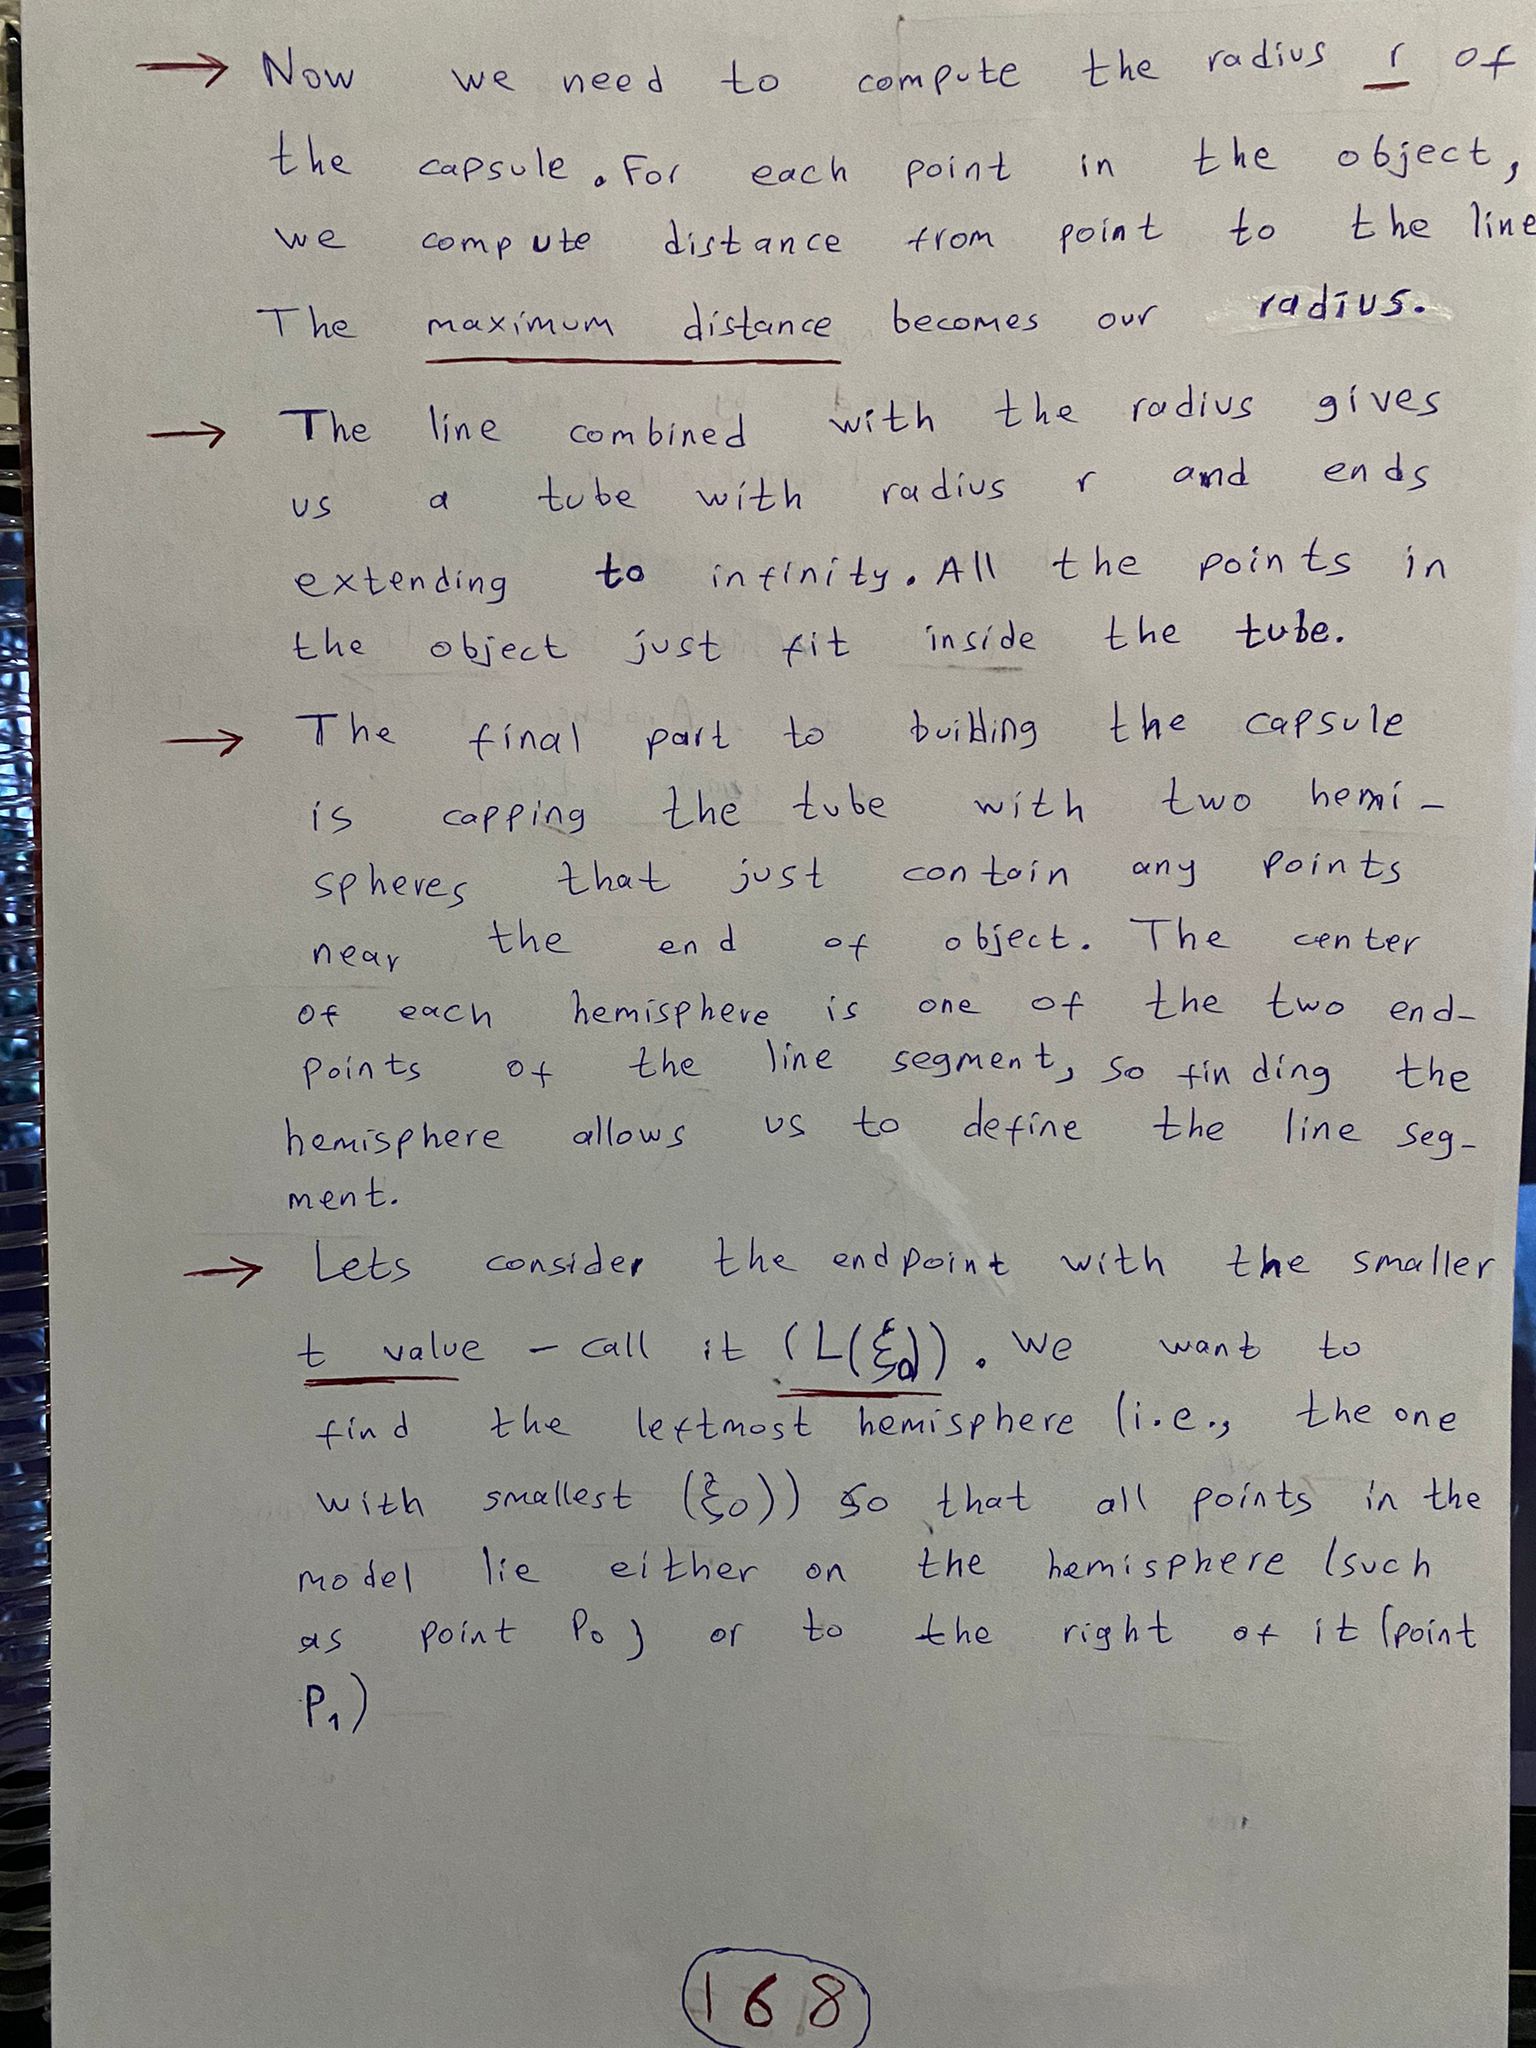 → Now we need to compute the radius r of
the capsule. For each point in the object,
we compute distance from point to the line
The maximum distance becomes our radius.
→ The line combined with the radius gives
us a tube with radius r and ends
extending to infinity. All the points in
the object just fit inside the tube.
→ The final part to building the capsule
is capping the tube with two hemi-
spheres that just contain any points
near the end of object. The center
of each hemisphere is one of the two end-
points of the line segment, so finding the
hemisphere allows us to define the line seg-
ment.
→ Lets consider the endpoint with the smaller
t value - call it (L(ξ0)). We want to
find the leftmost hemisphere (i.e., the one
with smallest (ξ0)) so that all points in the
model lie either on the hemisphere (such
as point P0) or to the right of it (point
P1)
168